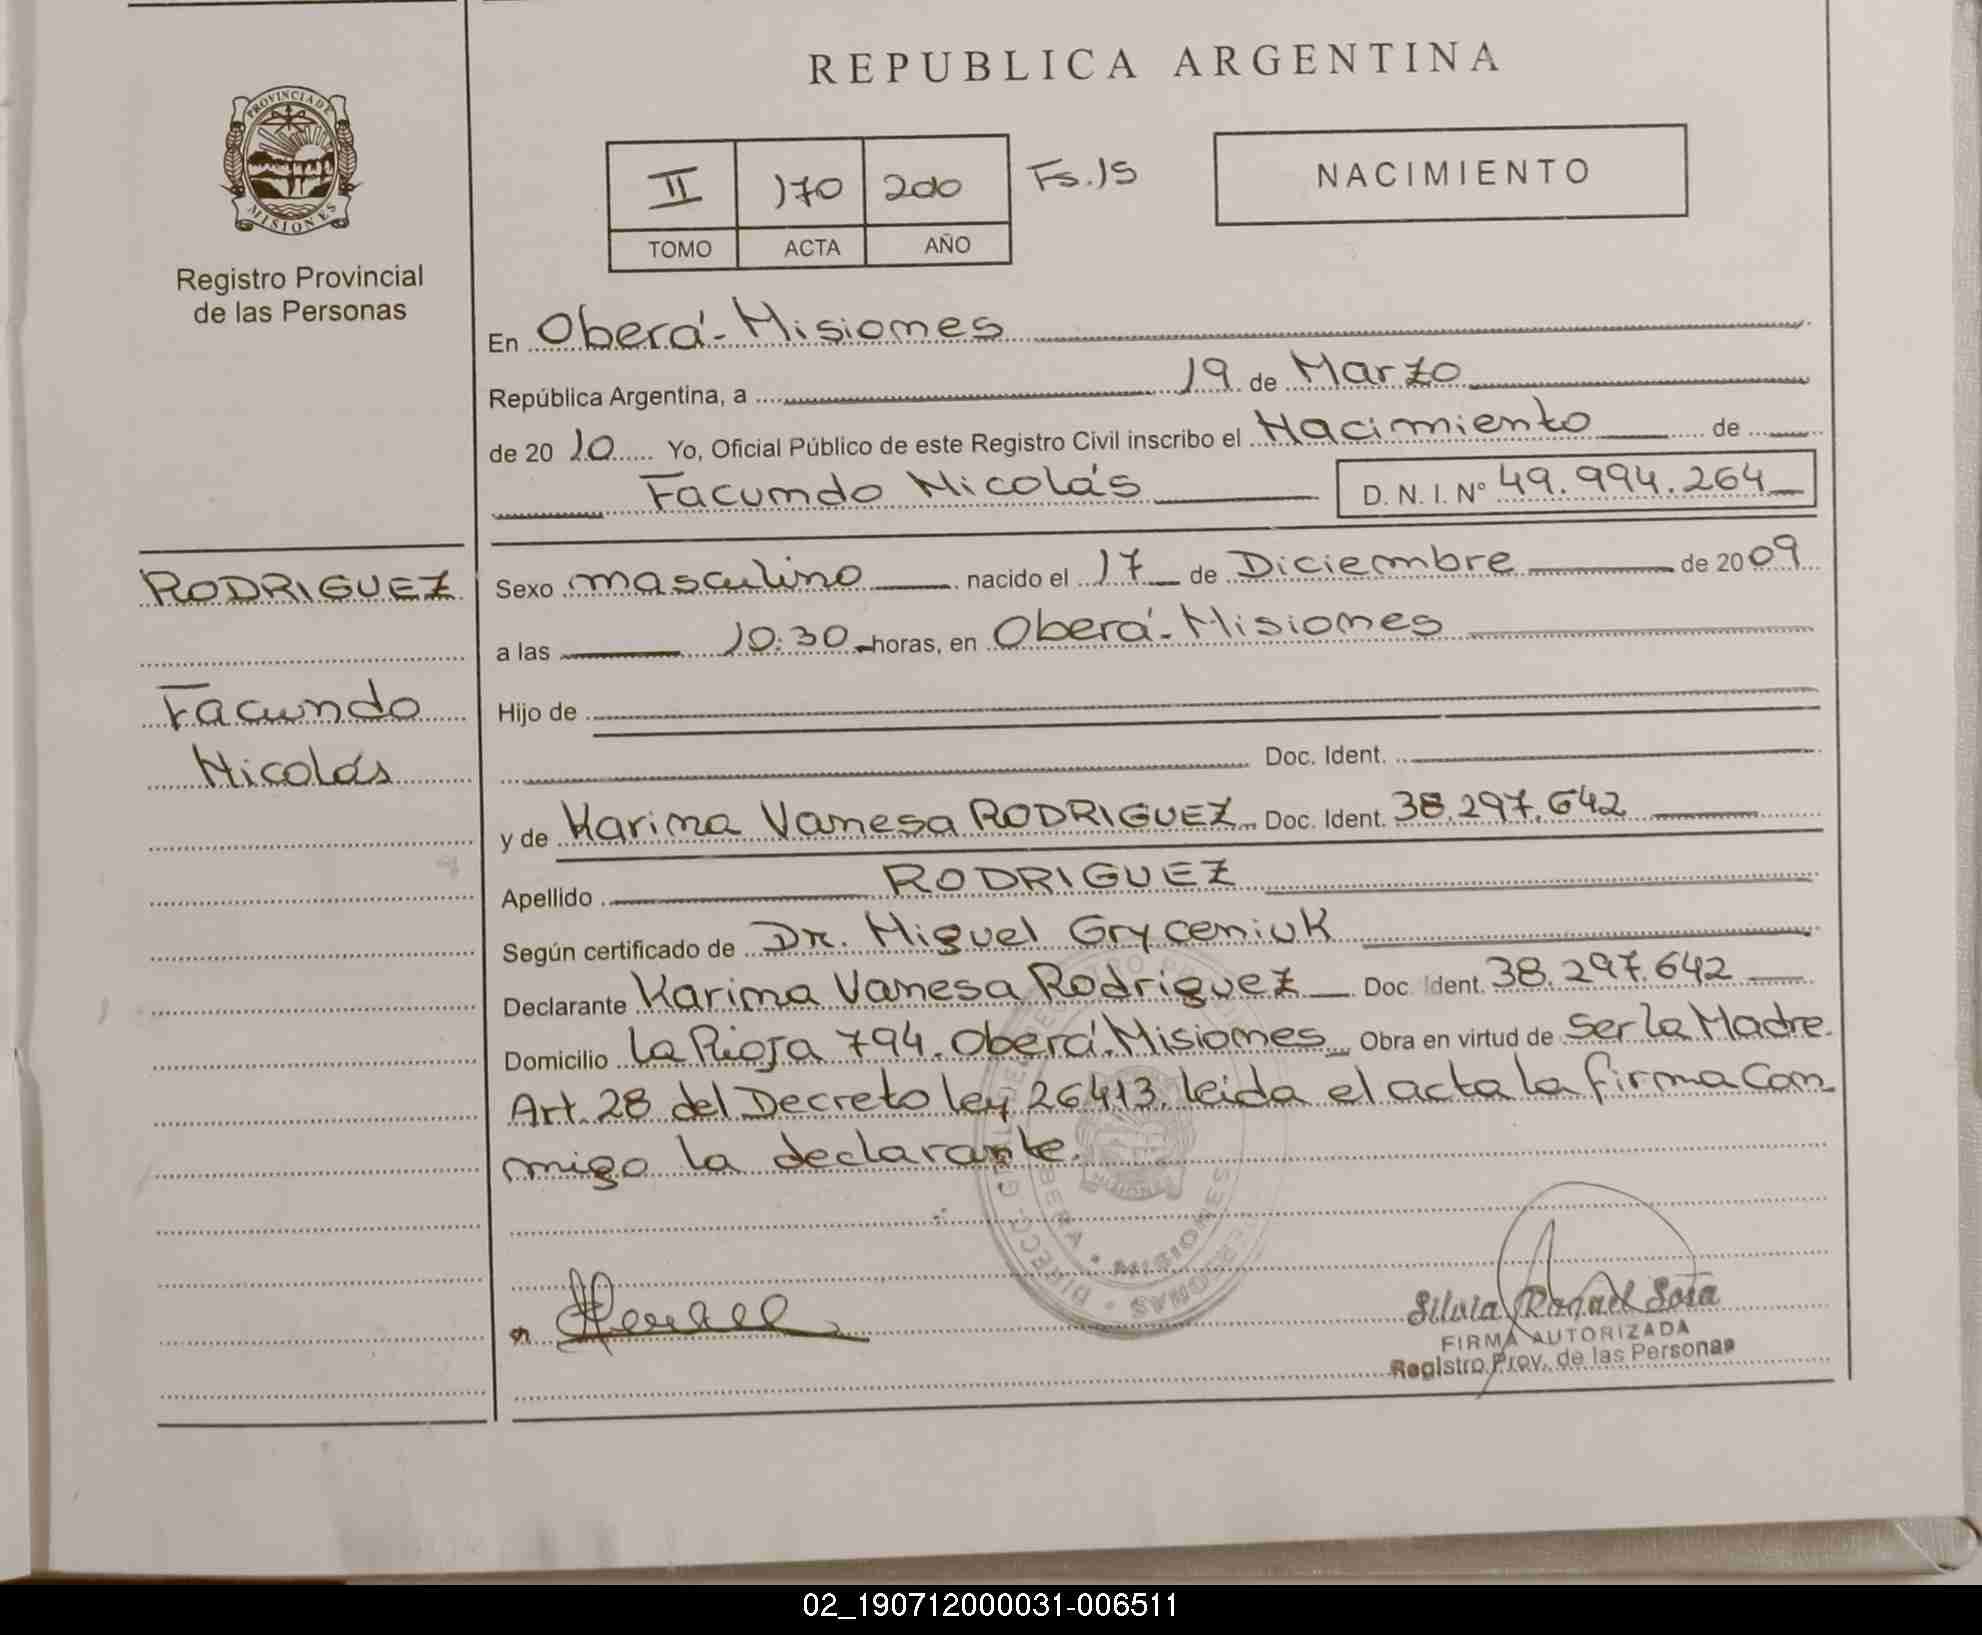 REPUBLICA ARGENTINA
PROVINCIA DE
MISIONES
Registro Provincial
de las Personas
II 170 2010 Fs. 15
TOMO ACTA AÑO
NACIMIENTO
En Oberá - Misiones
República Argentina, a 19 de Marzo
de 2010 Yo, Oficial Público de este Registro Civil inscribo el Nacimiento de
Facundo Nicolás D. N. I. Nº 49.994.264
RODRIGUEZ
Facundo
Nicolás
Sexo masculino nacido el 17 de Diciembre de 2009
a las 10:30 horas, en Oberá - Misiones
Hijo de
Doc. Ident.
y de Karina Vanesa RODRIGUEZ Doc. Ident. 38.297.642
Apellido RODRIGUEZ
Según certificado de Dr. Miguel Gryceniuk
Declarante Karina Vanesa Rodriguez Doc. Ident. 38.297.642
Domicilio La Rioja 794. Oberá. Misiones Obra en virtud de Ser la Madre.
Art. 28 del Decreto ley 26413. leida el acta la firma Con
migo la declarante.
MISIONES
Silvia Raquel Sosa
FIRMA AUTORIZADA
Registro Prov. de las Personas
02_190712000031-006511